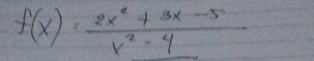 f(x) = (2x² + 3x - 5) / (x² - 4)